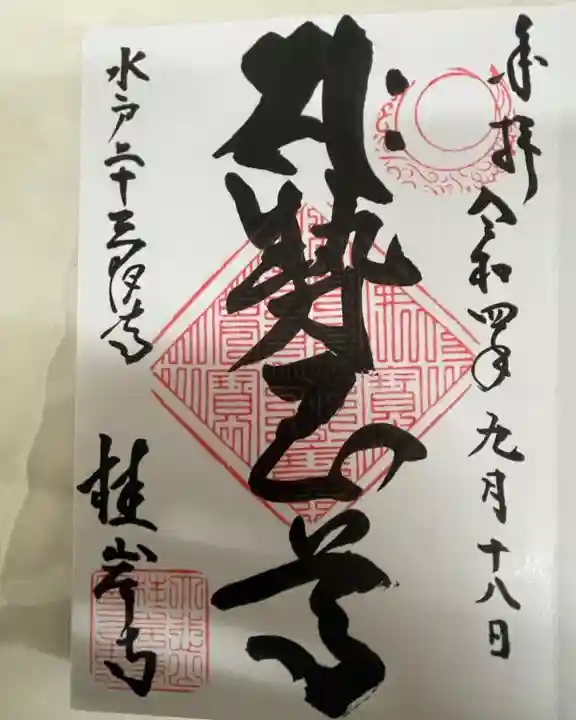 奉拝 令和四年九月十八日
勢至尊
水戸二十三夜尊
桂岸寺